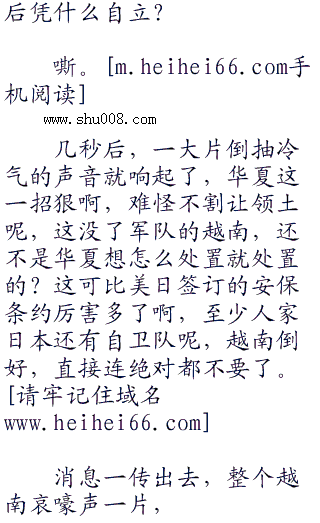 后凭什么自立？
嘶。[m.heihei66.com手
机阅读]
www.shu008.com
几秒后，一大片倒抽冷
气的声音就响起了，华夏这
一招狠啊，难怪不割让领土
呢，这没了军队的越南，还
不是华夏想怎么处置就处置
的？这可比美日签订的安保
条约厉害多了啊，至少人家
日本还有自卫队呢，越南倒
好，直接连绝对都不要了。
[请牢记住域名
www.heihei66.com]
消息一传出去，整个越
南哀嚎声一片，